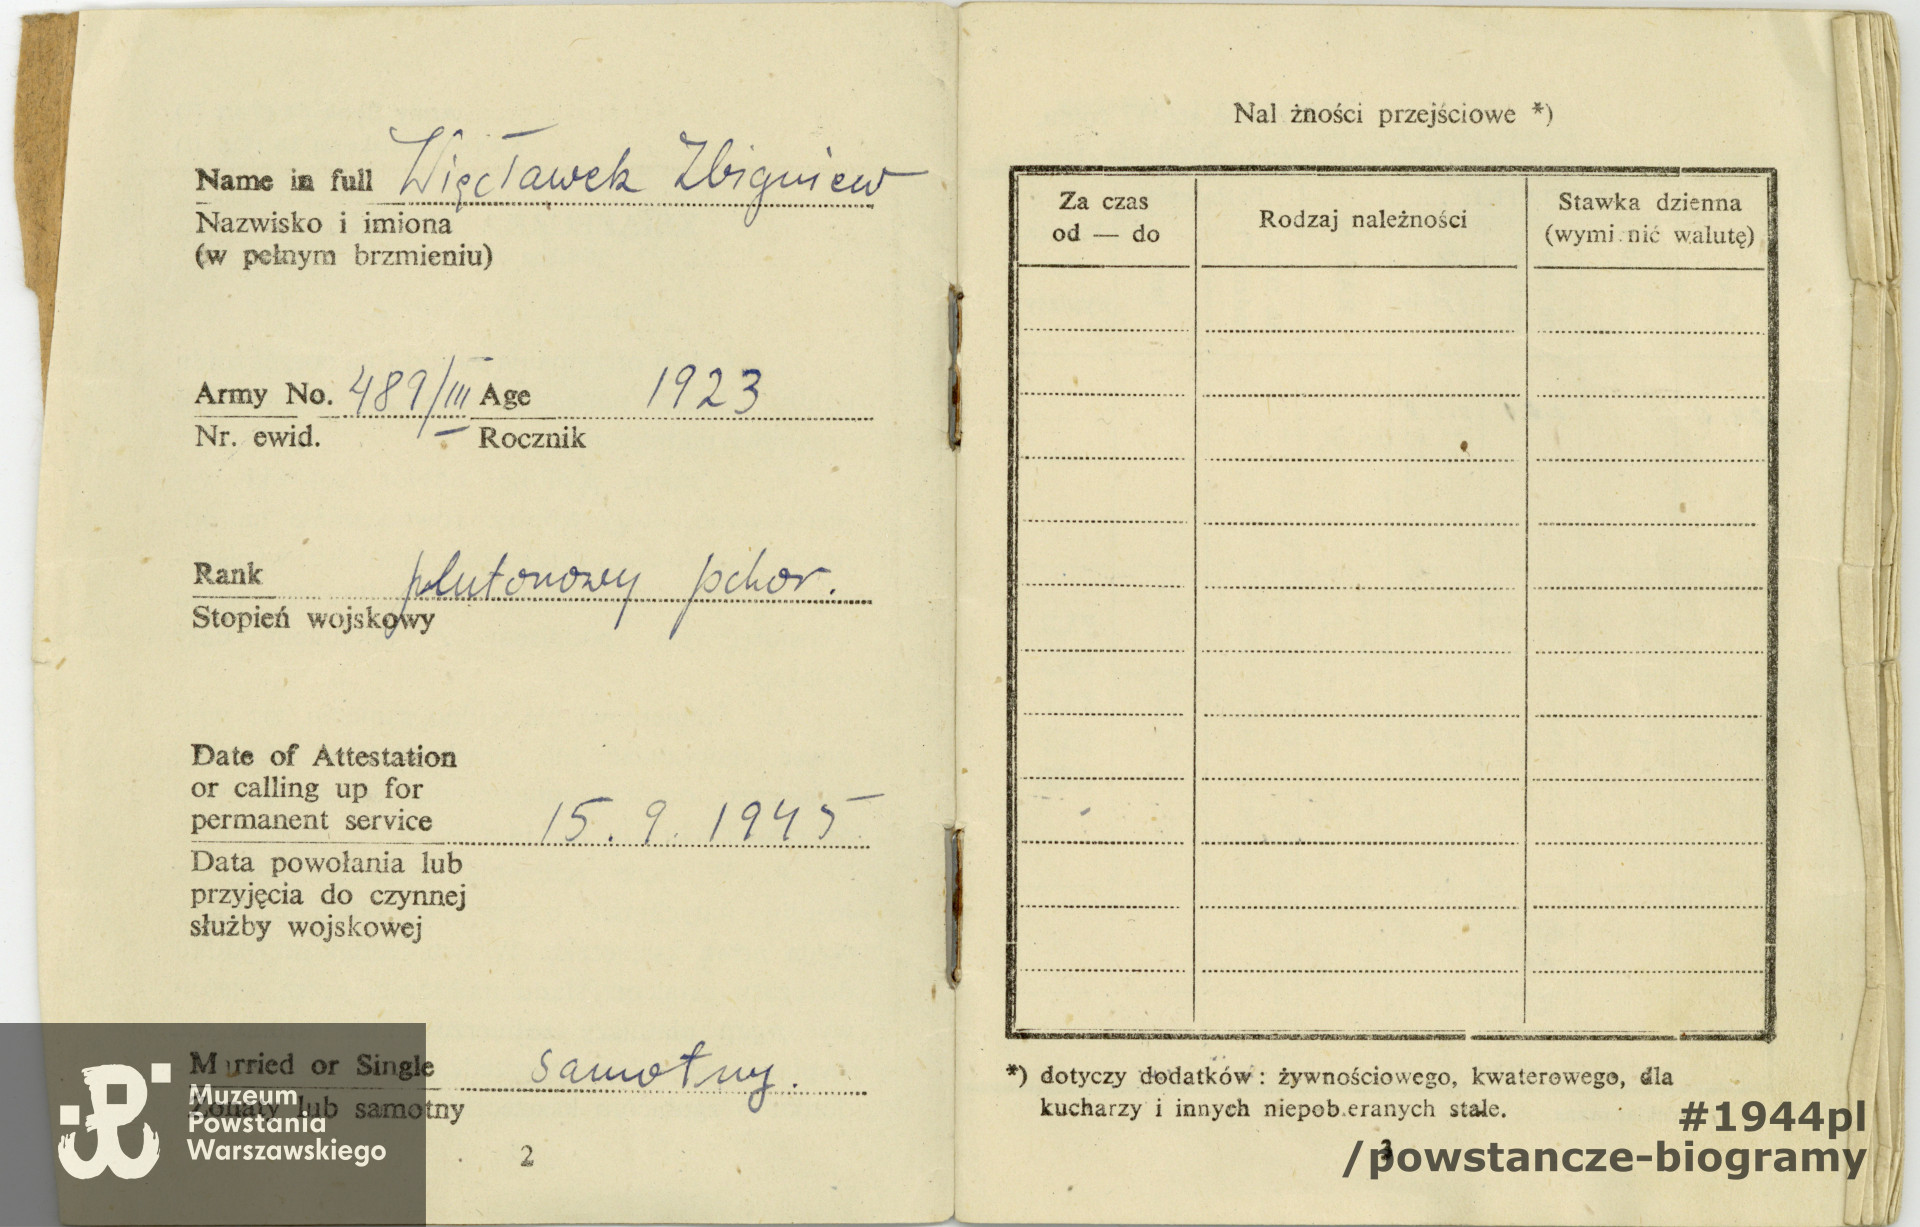 Name in full Więcławek Zbigniew
Nazwisko i imiona
(w pełnym brzmieniu)
Army No. 489/III Age 1923
Nr. ewid. Rocznik
Rank plutonowy pchor.
Stopień wojskowy
Date of Attestation
or calling up for
permanent service 15. 9. 1945
Data powołania lub
przyjęcia do czynnej
służby wojskowej
Married or Single samotny.
Żonaty lub samotny
2
Nal żności przejściowe *)
Za czas
od — do
Rodzaj należności
Stawka dzienna
(wymi nić walutę)
*) dotyczy dodatków: żywnościowego, kwaterowego, dla
kucharzy i innych niepob.eranych stale.
3
Muzeum
Powstania
Warszawskiego
#1944pl
/powstancze-biogramy